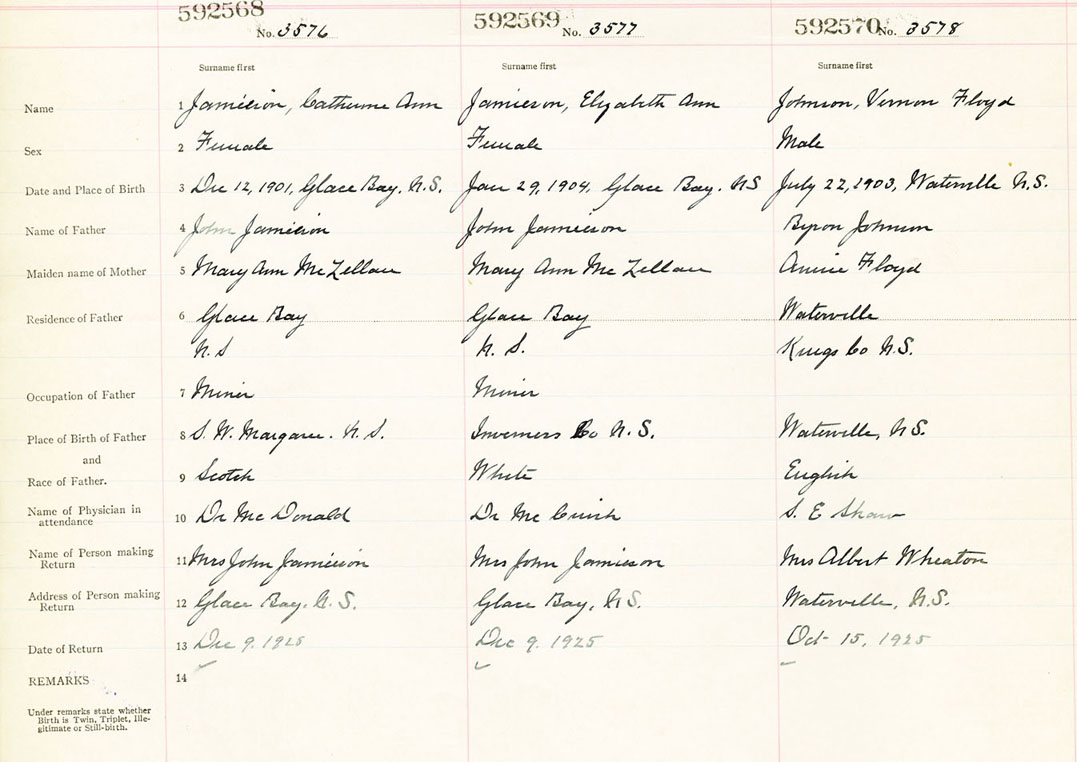 592568 592569 592570
No. 3576 No. 3577 No. 3578
Surname first Surname first Surname first
Name 1 Jamieson, Catherine Ann Jamieson, Elizabeth Ann Johnson, Vernon Floyd
Sex 2 Female Female Male
Date and Place of Birth 3 Dec 12, 1901, Glace Bay. N.S. Jan 29, 1904, Glace Bay. NS July 22, 1903, Waterville N.S.
Name of Father 4 John Jamieson John Jamieson Byron Johnson
Maiden name of Mother 5 Mary Ann McLellan Mary Ann McLellan Annie Floyd
Residence of Father 6 Glace Bay Glace Bay Waterville
N.S N. S. Kings Co N.S.
Occupation of Father 7 Miner Miner
Place of Birth of Father 8 S. W. Margaree. N. S. Inverness Co N.S. Waterville, N.S.
and
Race of Father. 9 Scotch White English
Name of Physician in
attendance 10 Dr McDonald Dr Mc S. E Shaw
Name of Person making
Return 11 Mrs John Jamieson Mrs John Jamieson Mrs Albert Wheaton
Address of Person making
Return 12 Glace Bay. N.S. Glace Bay, N.S. Waterville, N.S.
Date of Return 13 Dec 9. 1925 Dec 9. 1925 Oct 15, 1925
REMARKS 14
Under remarks state whether
Birth is Twin, Triplet, Ille-
gitimate or Still-birth.